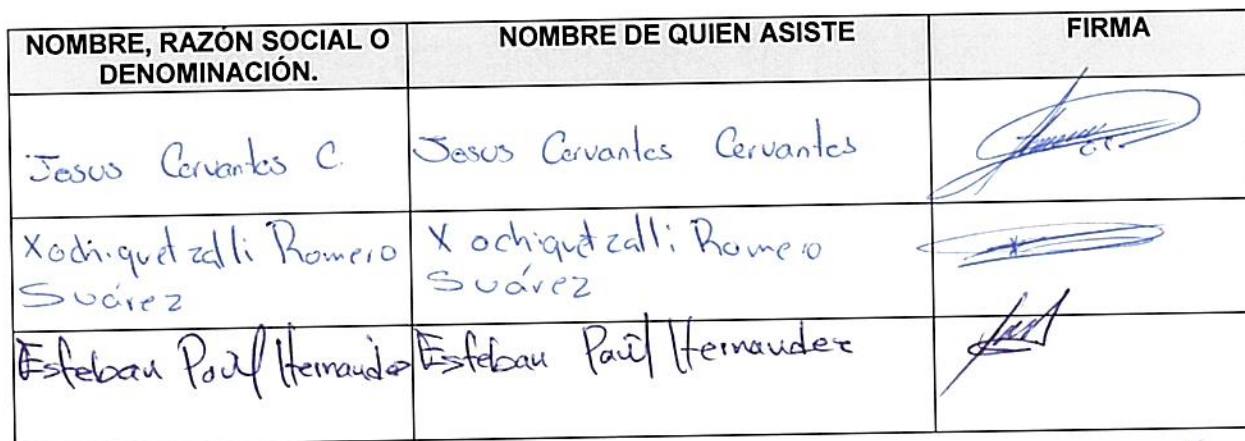 NOMBRE, RAZÓN SOCIAL O
DENOMINACIÓN.
NOMBRE DE QUIEN ASISTE
FIRMA
Jesus Cervantes C.
Jesus Cervantes Cervantes
Xochiquetzalli Romero
Suárez
Xochiquetzalli Romero
Suárez
Esteban Paúl Hernandez
Esteban Paúl Hernandez